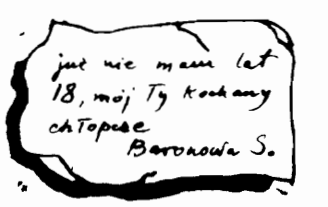 już nie mam lat
18, mój Ty kochany
chłopcze
Baronowa S.